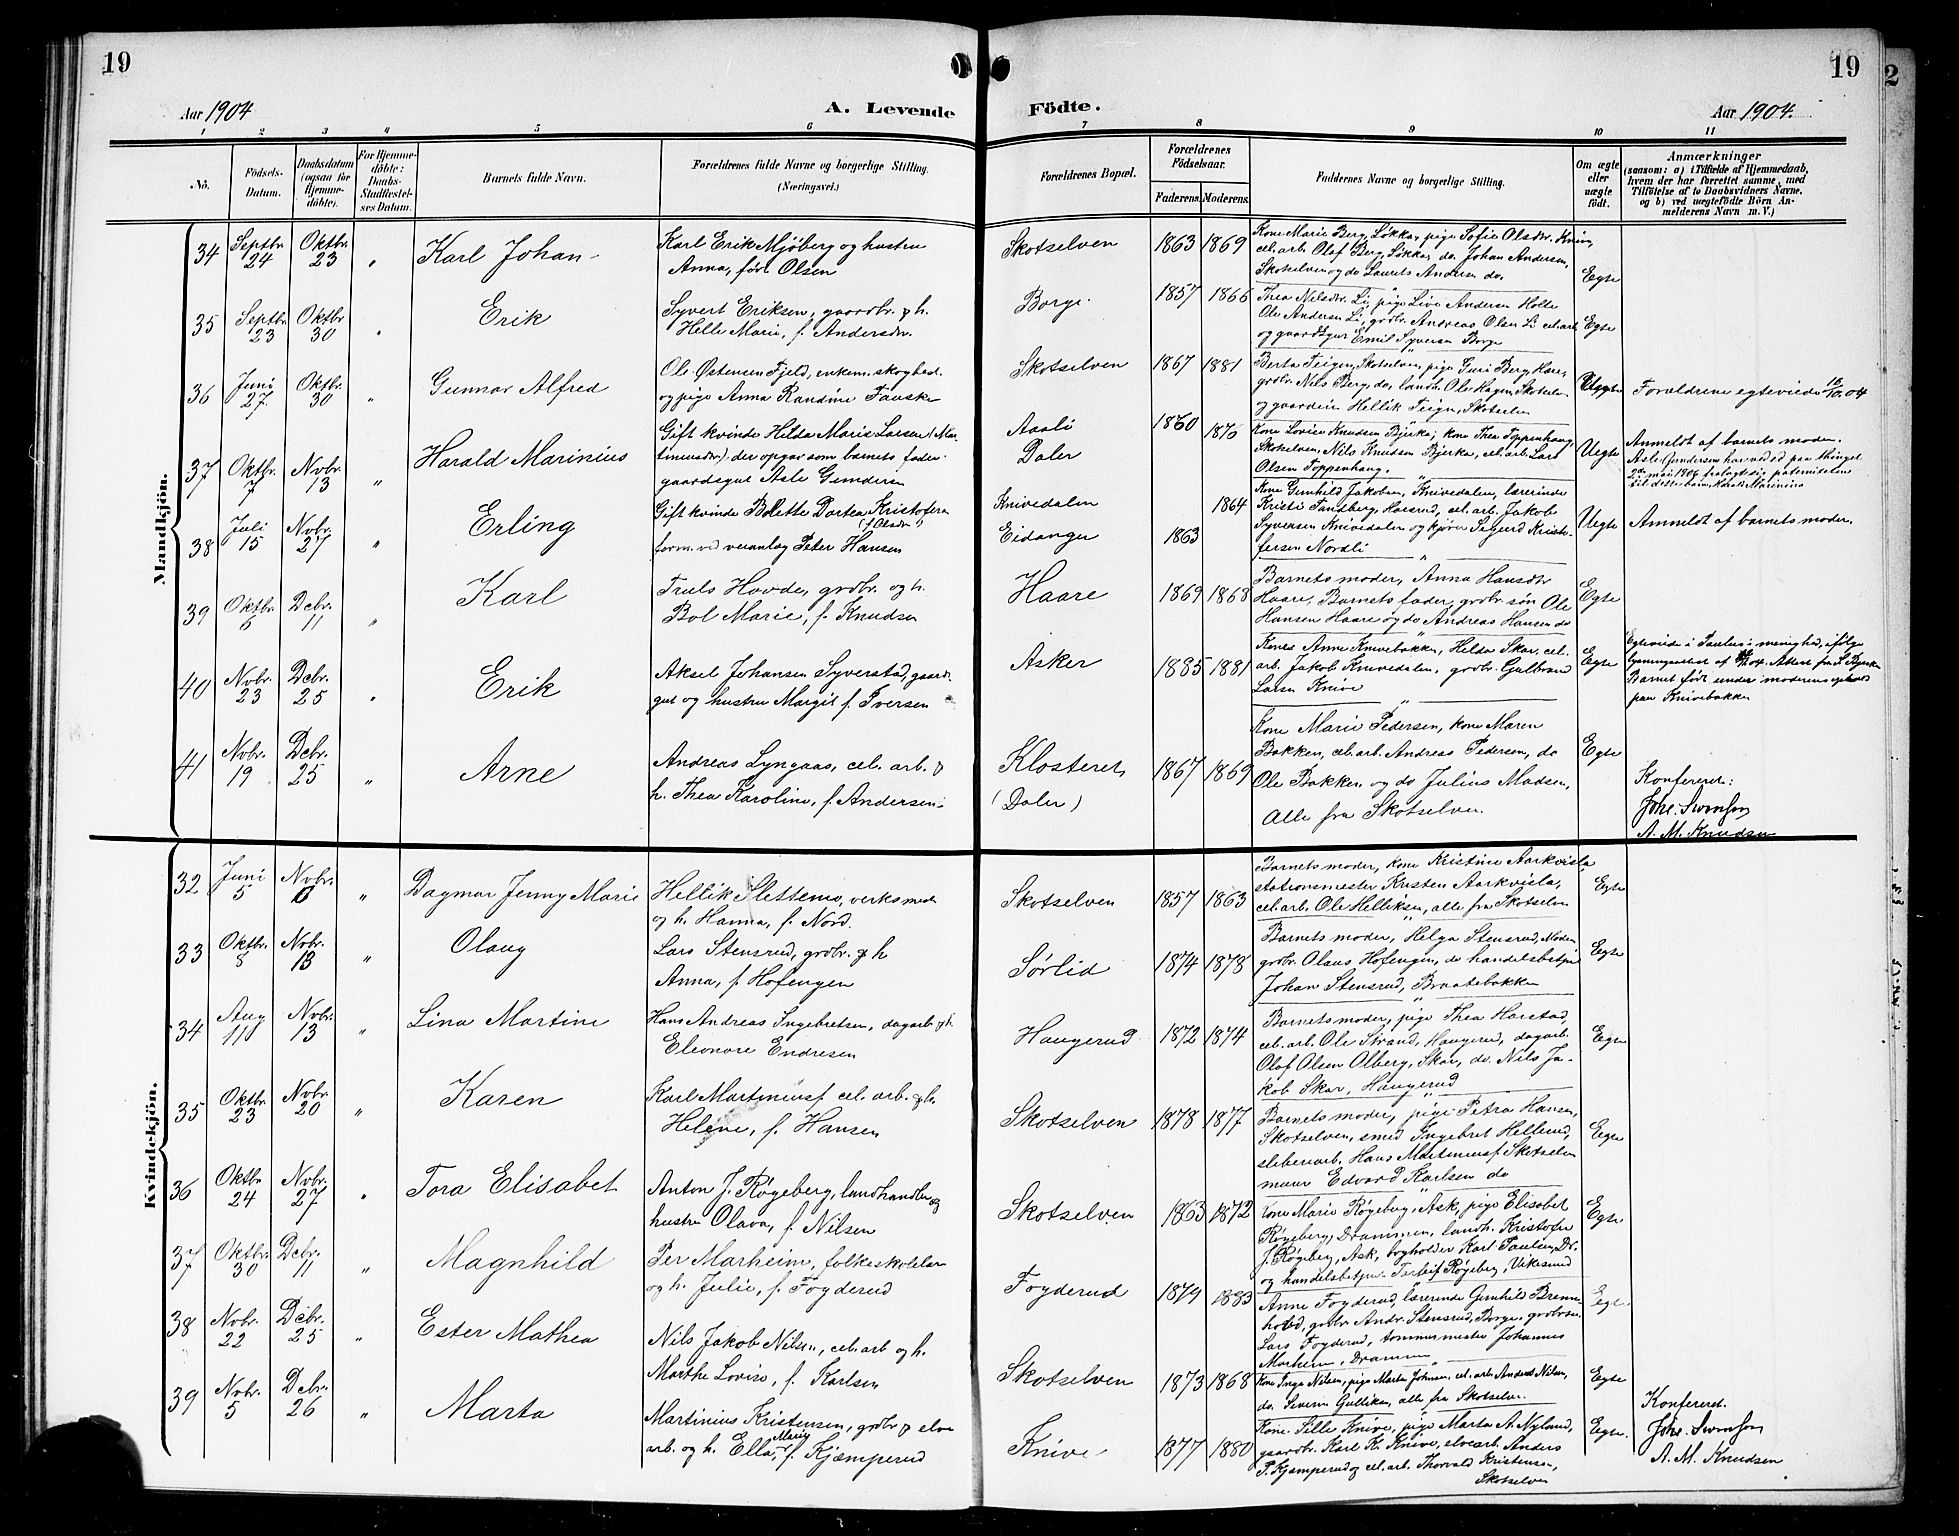 19
Aar 1904
A. Levende
1 2 3 4 5 6
Nô.
Födsels-
Datum.
Daabsdatum
(ogsaa for
Hjemme-
döbte).
For Hjemme-
döbte:
Daabs-
Stadfæstel-
ses Datum.
Barnets fulde Navn.
Forældrenes fulde Navne og borgerlige Stilling.
(Næringsvei.)
Mandkjön.
34 Septbr. 24 Oktbr. 23 " Karl Johan
Karl Erik Mjöberg og hustru
Anna, født Olsen
35 Septbr. 23 Oktbr. 30 " Erik
Syvert Eriksen, gaardbr. & h.
Helle Marie, f. Andersdtr.
36 Juni 27 Oktbr. 30 " Gunnar Alfred
Ole Østensen Fjeld, enkem. skoghed.
og pige Anna Randine Fauske
37 Oktbr. 7 Novbr. 13 " Harald Marinius
Gift kvinde Hilda Marie Larsen (Mar-
tinusdtr); der opgav som barnets fader
gaardsgut Asle Gundersen
38 Juli 15 Novbr. 27 " Erling
Gift kvinde Bolette Dortea Kristofersen
(f. Olsdtr.)
form. ved veranlæg Peter Hansen
39 Oktbr. 6 Dcbr. 11 " Karl
Truls Hovde, grdbr. og h.
Bol Marie, f. Knudsen
40 Novbr. 23 Dcbr. 25 " Erik
Aksel Johansen Syverstad, gaards-
gut og hustru Margit f. Iversen
41 Novbr. 19 Dcbr. 25 " Arne
Andreas Lyngaas, cel. arb. &
h. Thea Karoline, f. Andersen
Kvindekjön.
32 Juni 5 Novbr. 6 " Dagmar Jenny Marie
Hellik Slettemo, verksmed
og h. Hanna, f. Nord.
33 Oktbr. 8 Novbr. 13 " Olaug
Lars Stensrud, grdbr. & h
Anna, f. Hofengen
34 Aug 11 Novbr. 13 " Lina Martine
Hans Andreas Ingebretsen, dagarb. & h.
Eleonore Endresen
35 Oktbr. 23 Novbr. 20 " Karen
Karl Martiniusf cel. arb. & h.
Helene, f. Hansen
36 Oktbr. 24 Novbr. 27 " Tora Elisabet
Anton J. Røgeberg, landhandler og
hustru Olava, f. Nilsen
37 Oktbr. 30 Dcbr. 11 " Magnhild
Per Marheim, folkeskolelær
og h. Julie, f. Foyderud
38 Novbr. 22 Dcbr. 25 " Ester Mathea
Nils Jakob Nilsen, cel. arb og h.
Marthe Lovise, f. Karlsen
39 Novbr. 5 Dcbr. 26 " Marta
Martinius Kristensen, grdbr & elve
arb. og h. Ella Marie, f. Kjæmperud
19
Födte.
Aar 1904.
7 8 9 10 11
Forældrenes Bopæl.
Forældrenes
Födselsaar.
Faderens. Moderens.
Faddernes Navne og borgerlige Stilling.
Om ægte
eller
uægte
födt.
Anmærkninger
(saasom: a) i Tilfælde af Hjemmedaab,
hvem der har forrettet samme, med
Tilföielse af to Daabsvidners Navne,
og b) ved uægtefödte Börn An-
melderens Navn m. V.)
Skotselven 1863 1869
Kone Marie Berg, Løkka, pige Sofie Olsdtr. Knive,
cel. arb. Olaf Berg, Løkka, do. Johan Andersen,
Skotselven og do Laurits Andersen do.
Egte
Borge 1857 1866
Thea Nilsdtr. Li, pige Live Andersen Holte
Ole Andersen Li, grdbr. Andreas Olsen Li cel. arb
og gaardbgur Emil Syversen Borge
Egte
Skotselven 1867 1881
Berta Teigen, Skotselven, pige Guri Berg, Hare,
grdbr Nils Berg, do, landh. Ole Hagen, Skotselven
og gaardeier Hellik Teigen, Skotselven
Uegte Forældrene egteviede 15/10.04
Aasli
Daler
1860 1876
Kone Lovise Knudsen Bjerke, kone Thea Toppenhaug,
Skotselven, Nils Knudsen Bjerke, cel. arb. Lars
Olsen Toppenhaug.
Uegte
Anmeldt af barnets moder.
Asle Gundersen har ved ed paa thinget
2den mai 1906 fralagt sig paterniteten
til dette barn, Harald Marinius
Knivedalen
Eidanger
1863 1864
Kone Gunhild Jakobsen, Knivedalen, lærerinde
Kristi Sandberg, Horsrud, cel. arb. Jakob
Syversen Knivedalen og kjører Sigurd Kristo-
fersen Nordli
Uegte Anmeldt af barnets moder.
Haare 1869 1868
Barnets moder, Anna Hansdtr
Haare, Barnets fader, grdbr. søn Ole
Hansen Haare og do Andreas Hansen do
Egte
Asker 1885 1881
Kones Anne Knivebakken, Hilda Skar, cel.
arb. Jakob Knivedalen, grdbr. Gulbrand
Larsen Knive
Egte
Egteviede i Paulus menighed, ifølge
Barnet født under moderens ophold
paa Knivebakken
Klosteret
(Daler)
1867 1869
Kone Marie Pedersen, kone Maren
Bakken, cel. arb. Andreas Pedersen, do
Ole Bakken og do Julius Madsen,
Alle fra Skotselven.
Egte
Konfereret:
Johs. Svensen
A. M. Knudsen
Skotselven 1857 1863
Barnets moder, kone Kristine Aarkvisla,
stationsmester Kristen Aarkvisla,
cel. arb. Ole Helliksen, alle fra Skotselven
Egte
Sørlid 1874 1878
Barnets moder, Helga Stensrud, Moden
grdbr. Olaus Hofengen, do handelsbetjen
Johan Stensrud, Braatebakken
Egte
Haugerud 1872 1874
Barnets moder, pige Thea Harstad,
cel. arb. Ole Strand, Haugerud, dagarb.
Olaf Olsen Olberg, Skar, do. Nils Ja-
kob Skar, Haugerud
Egte
Skotselven 1878 1877
Barnets moder, pige Petra Hansen,
Skotselven, smed Ingebret Hellerud,
sliberiarb. Hans Martiniusf Skotselven
murer Edvard Karlsen do
Egte
Skotselven 1863 1872
Kone Marie Røgeberg, Ask, pige Elisabet
Røgeberg, Drammen, landh. Kristofer
J. Røgeberg, Ask, bogholder Karl Paulsen, Dr.
og handelsbetjent Terleif Røgeberg, Vikesund
Egte
Foyderud 1879 1883
Anne Foyderud, lærerinde Gunhild Brenne-
hoved, grdbr Andr. Stensrud, Borge, grdbrsøn
Lars Foyderud, tommermester Johannes
Marheim, Drammen
Egte
Skotselven 1873 1868
Kone Inga Nilsen, pige Marta Johnsen, cel. arb. Anders Nilsen,
do. Severin Gulliksen, alle fra Skotselven.
Egte
Knive 1877 1880
Kone Sille Knive, pige Marta A. Nyland,
gaardbr. Karl K. Knive, elvearb. Anders
P. Kjæmperud og cel. arb. Thorvald Kristensen,
Skotselven
Egte.
Konfereret.
Johs. Svensen
A. M. Knudsen
2